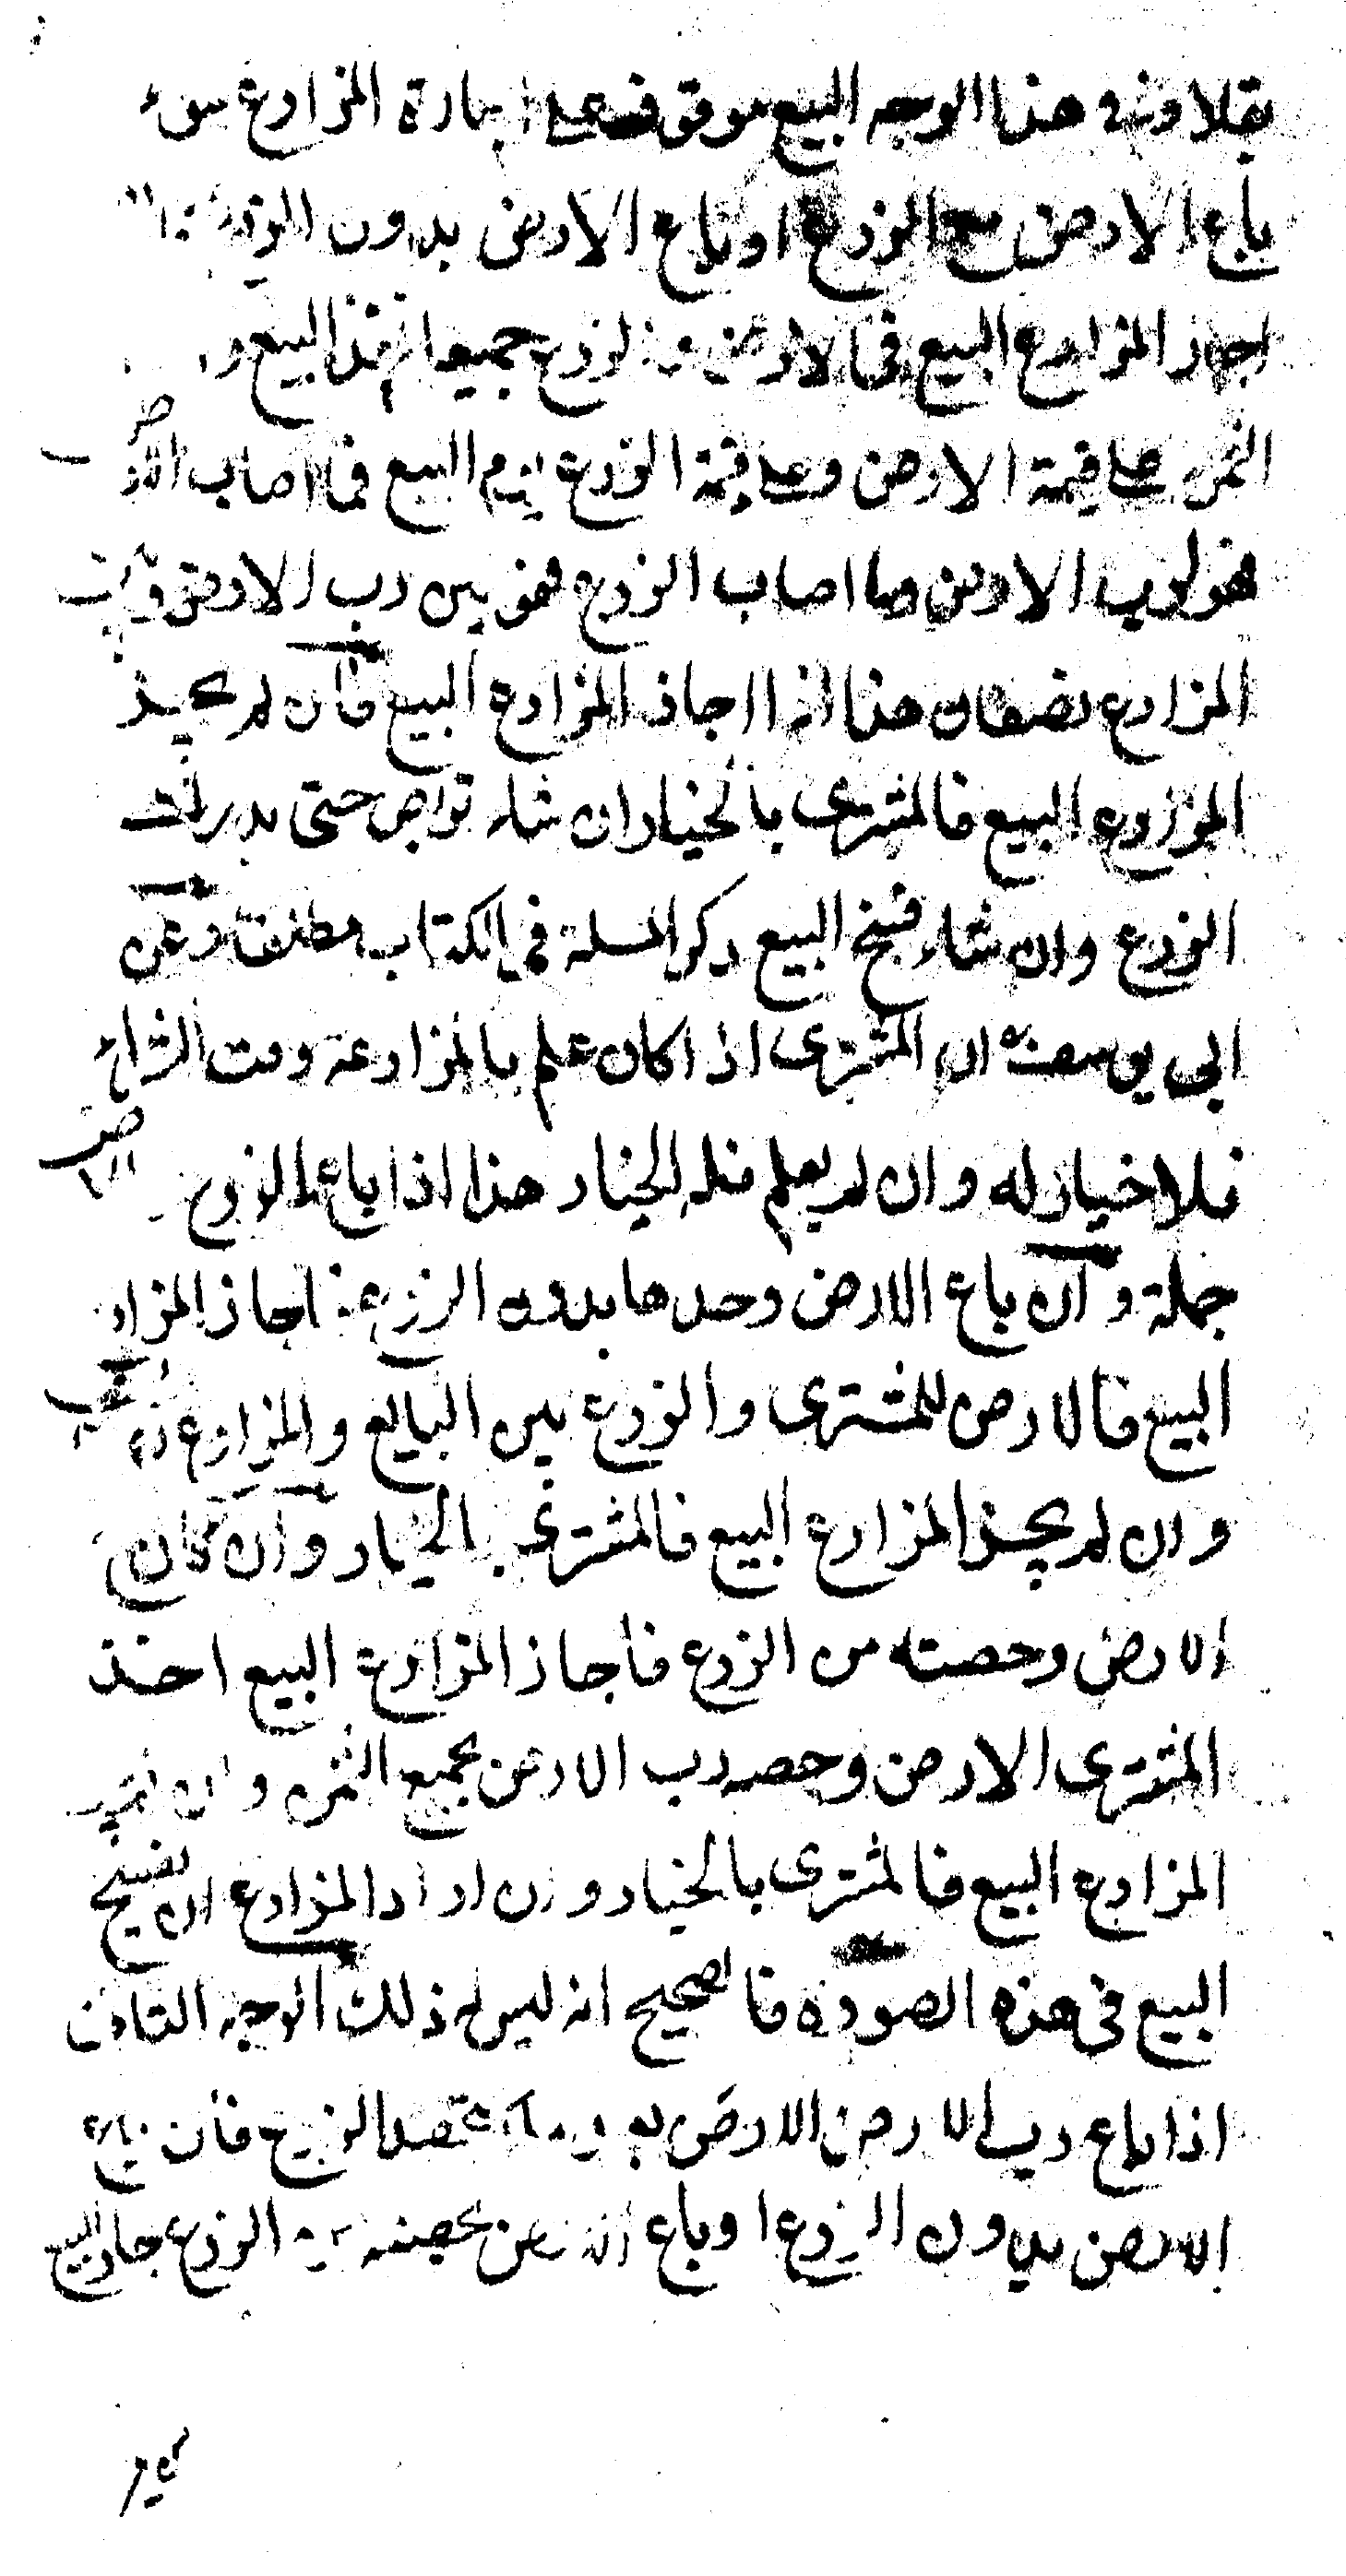 بقلا وفي هذا الوجه البيع موقوف على اجازة المزارع سواء
باع الارض مع الزرع او باع الارض بدون الزرع
اجاز المزارع البيع في الارض و الزرع جميعا نفذ البيع و
الثمن على قيمة الارض وعلى قيمة الزرع يوم البيع فما اصاب الارض
فهو لرب الارض وما اصاب الزرع فهو بين رب الارض وبين
المزارع نصفان هذا اذا اجاز المزارع البيع فان لم يجيز
المزارع البيع فالمشترى بالخيار ان شاء تربص حتى يدرك
الزرع وان شاء فسخ البيع ذكر المسلة في الكتاب مطلقا وعن
ابي يوسف ان المشترى اذا كان علم بالمزارعة وقت الشراء
فلا خيار له وان لم يعلم فله الخيار هذا اذا باع الزرع
جملة وان باع الارض وحدها بدون الزرع اجاز المزارع
البيع فالارض للمشترى والزرع بين البايع والمزارع
وان لم يجز المزارع البيع فالمشترى بالخيار وان كان
الارض وحصته من الزرع فاجاز المزارع البيع اخذ
المشترى الارض وحصه رب الارض بجميع الثمن وان لم يجز
المزارع البيع فالمشترى بالخيار وان اراد المزارع ان يفسخ
البيع في هذه الصورة فالصحيح انه ليس له ذلك الوجه الثاني
اذا باع رب الارض الارض بعد ما استحصد الزرع فان باع
الارض بدون الزرع او باع الارض بحصته من الزرع جاز البيع